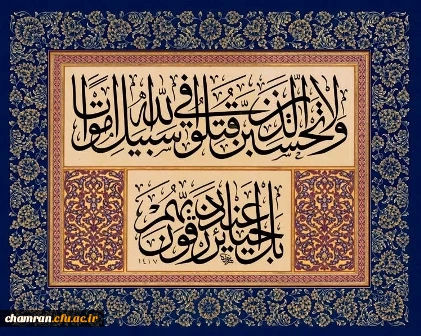 ولا تحسبن الذين قتلوا في سبيل الله أمواتا
بل أحياء عند ربهم يرزقون
١٤١٧
chamran.cfu.ac.ir